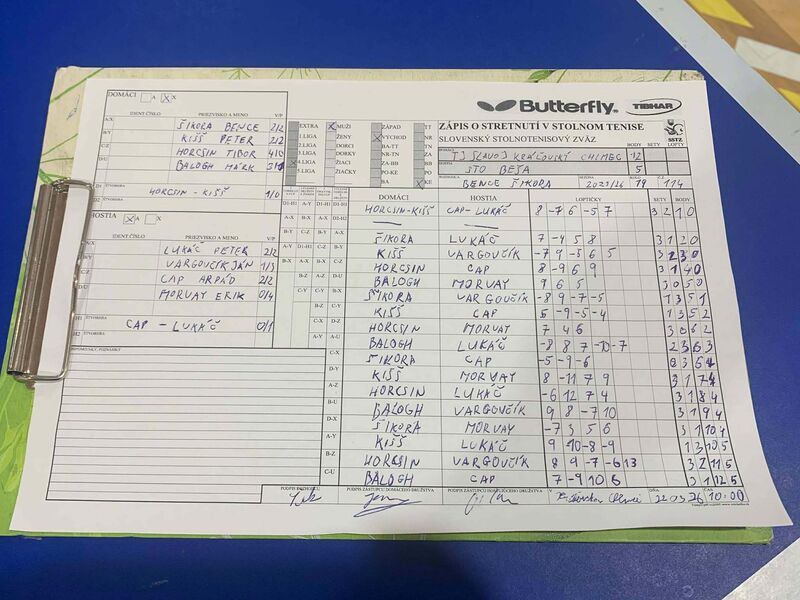 Butterfly
TIBHAR
ZÁPIS O STRETNUTÍ V STOLNOM TENISE
SLOVENSKÝ STOLNOTENISOVÝ ZVÄZ
SSTZ
BODY SETY LOPTY
TJ SLAVOJ KRÁĽOVSKÝ CHLMEC 12
ŠTO BEŠA 5
BENCE ŠIKORA 2025/26 19 114
DOMÁCI A X
IDENT.ČÍSLO PRIEZVISKO A MENO V/P
A/X ŠIKORA BENCE 2/2
B/Y KIŠŠ PETER 2/2
C/Z HORCSIN TIBOR 4/0
D/U BALOGH MÁRK 3/1
D1 ŠTVORHRA
HORCSIN - KIŠŠ 1/0
D2 ŠTVORHRA
HOSTIA X A X
IDENT.ČÍSLO PRIEZVISKO A MENO V/P
A/X LUKÁČ PETER 2/2
B/Y VARGOVČÍK JÁN 1/3
C/Z CAP ARPÁD 2/2
D/U MORVAY ERIK 0/4
H1 ŠTVORHRA
CAP - LUKÁČ 0/1
H2 ŠTVORHRA
PRIPOMIENKY, POZNÁMKY
EXTRA X MUŽI ZÁPAD TT
1.LIGA ŽENY VÝCHOD NR
2.LIGA DORCI BA-TT TN
3.LIGA DORKY NR-TN ZA
4.LIGA ŽIACI ZA-BB BB
5.LIGA ŽIAČKY PO-KE PO
BA KE
DOMÁCI HOSTIA LOPTIČKY SETY BODY
HORCSIN-KIŠŠ CAP-LUKÁČ 8 -7 6 -5 7 3 2 1 0
ŠIKORA LUKÁČ 7 -4 5 8 3 1 2 0
KIŠŠ VARGOVČÍK 7 9 -5 6 5
HORCSIN CAP 8 -9 6 9 3 1 4 0
BALOGH MORVAY 9 6 5 3 0 5 0
ŠIKORA VARGOVČÍK -8 9 -7 -5 1 3 5 1
KIŠŠ CAP 5 -9 -5 -4 1 3 5 2
HORCSIN MORVAY 7 4 6 3 0 6 2
BALOGH LUKÁČ -8 8 7 -10 -7 2 3 6 3
ŠIKORA CAP -5 -9 -6 0 3 6 4
KIŠŠ MORVAY 8 -11 7 9 3 1 7 4
HORCSIN LUKÁČ -6 12 7 4 3 1 8 4
BALOGH VARGOVČÍK 9 8 -7 10 3 1 9 4
ŠIKORA MORVAY -7 3 5 6 3 1 10 4
KIŠŠ LUKÁČ 9 -10 -8 -9 1 3 10 5
HORCSIN VARGOVČÍK 8 9 -7 -6 13 3 2 11 5
BALOGH CAP 7 -9 10 6 3 1 12 5
PODPIS ROZHODCU PODPIS ZÁSTUPCU DOMÁCEHO DRUŽSTVA PODPIS ZÁSTUPCU HOSŤUJÚCEHO DRUŽSTVA V DŇA ČAS
22.03.26 10:00